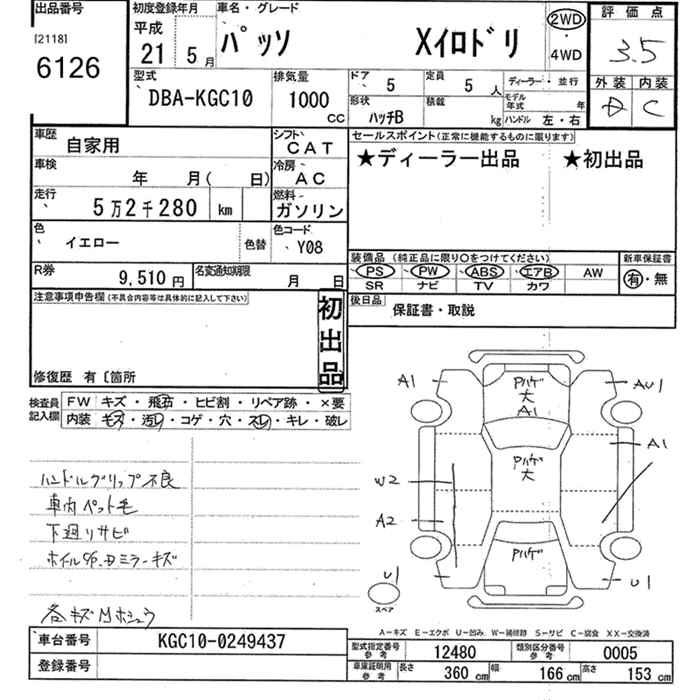 出品番号 初度登録年月 車名・グレード 2WD 評価点
[2118] 平成
6126 21 5月 パッソ Xイロドリ 4WD 3.5
型式 排気量 ドア 5 定員 5人 ディーラー・並行 外装 内装
DBA-KGC10 1000 CC 形状 ハッチB 積載 kg モデル年式 年 D C
ハンドル 左・右
車歴 自家用 シフト CAT セールスポイント(正常に機能するものに限ります)
車検 年 月( 日) 冷房 AC ★ディーラー出品 ★初出品
走行 5万2千280 km 燃料 ガソリン
色 イエロー 色替 色コード Y08
装備品(純正品に限り○をつけてください) 新車保証書
R券 9,510円 名変通知期限 月 日 PS PW ABS エアB AW 有・無
SR ナビ TV カワ
注意事項申告欄(不具合内容等は具体的に記入して下さい) 初出品 後日品 保証書・取説
修復歴 有〔箇所
検査員記入欄 FW キズ・飛石・ヒビ割・リペア跡・×要
内装 キズ・汚レ・コゲ・穴・スレ・キレ・破レ
A1 Pハゲ 大 A1 AU1
A1
ハンドルグリップ不良 Pハゲ 大
車内ペット毛 W2
下廻リサビ A2
ホイルCap.Dミラーキズ Pハゲ
U1 U1
スペア
各キズMホシュウ
A-キズ E-エクボ U-凹み W-補修跡 S-サビ C-腐食 XX-交換済
車台番号 KGC10-0249437 型式指定番号 参考 12480 類別区分番号 参考 0005
登録番号 車庫証明用 参考 長さ 360 cm 幅 166 cm 高さ 153 cm